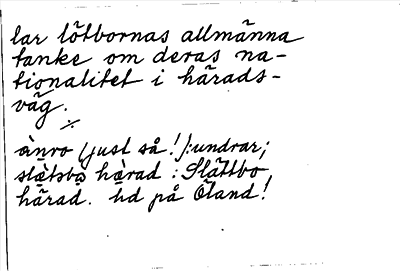 lar lötbornas allmänna
tanke om deras na-
tionalitet i härads-
väg.
⁒
ànro (just så!): undrar;
slätsbo härad: Slättbo
härad. hd på Öland!